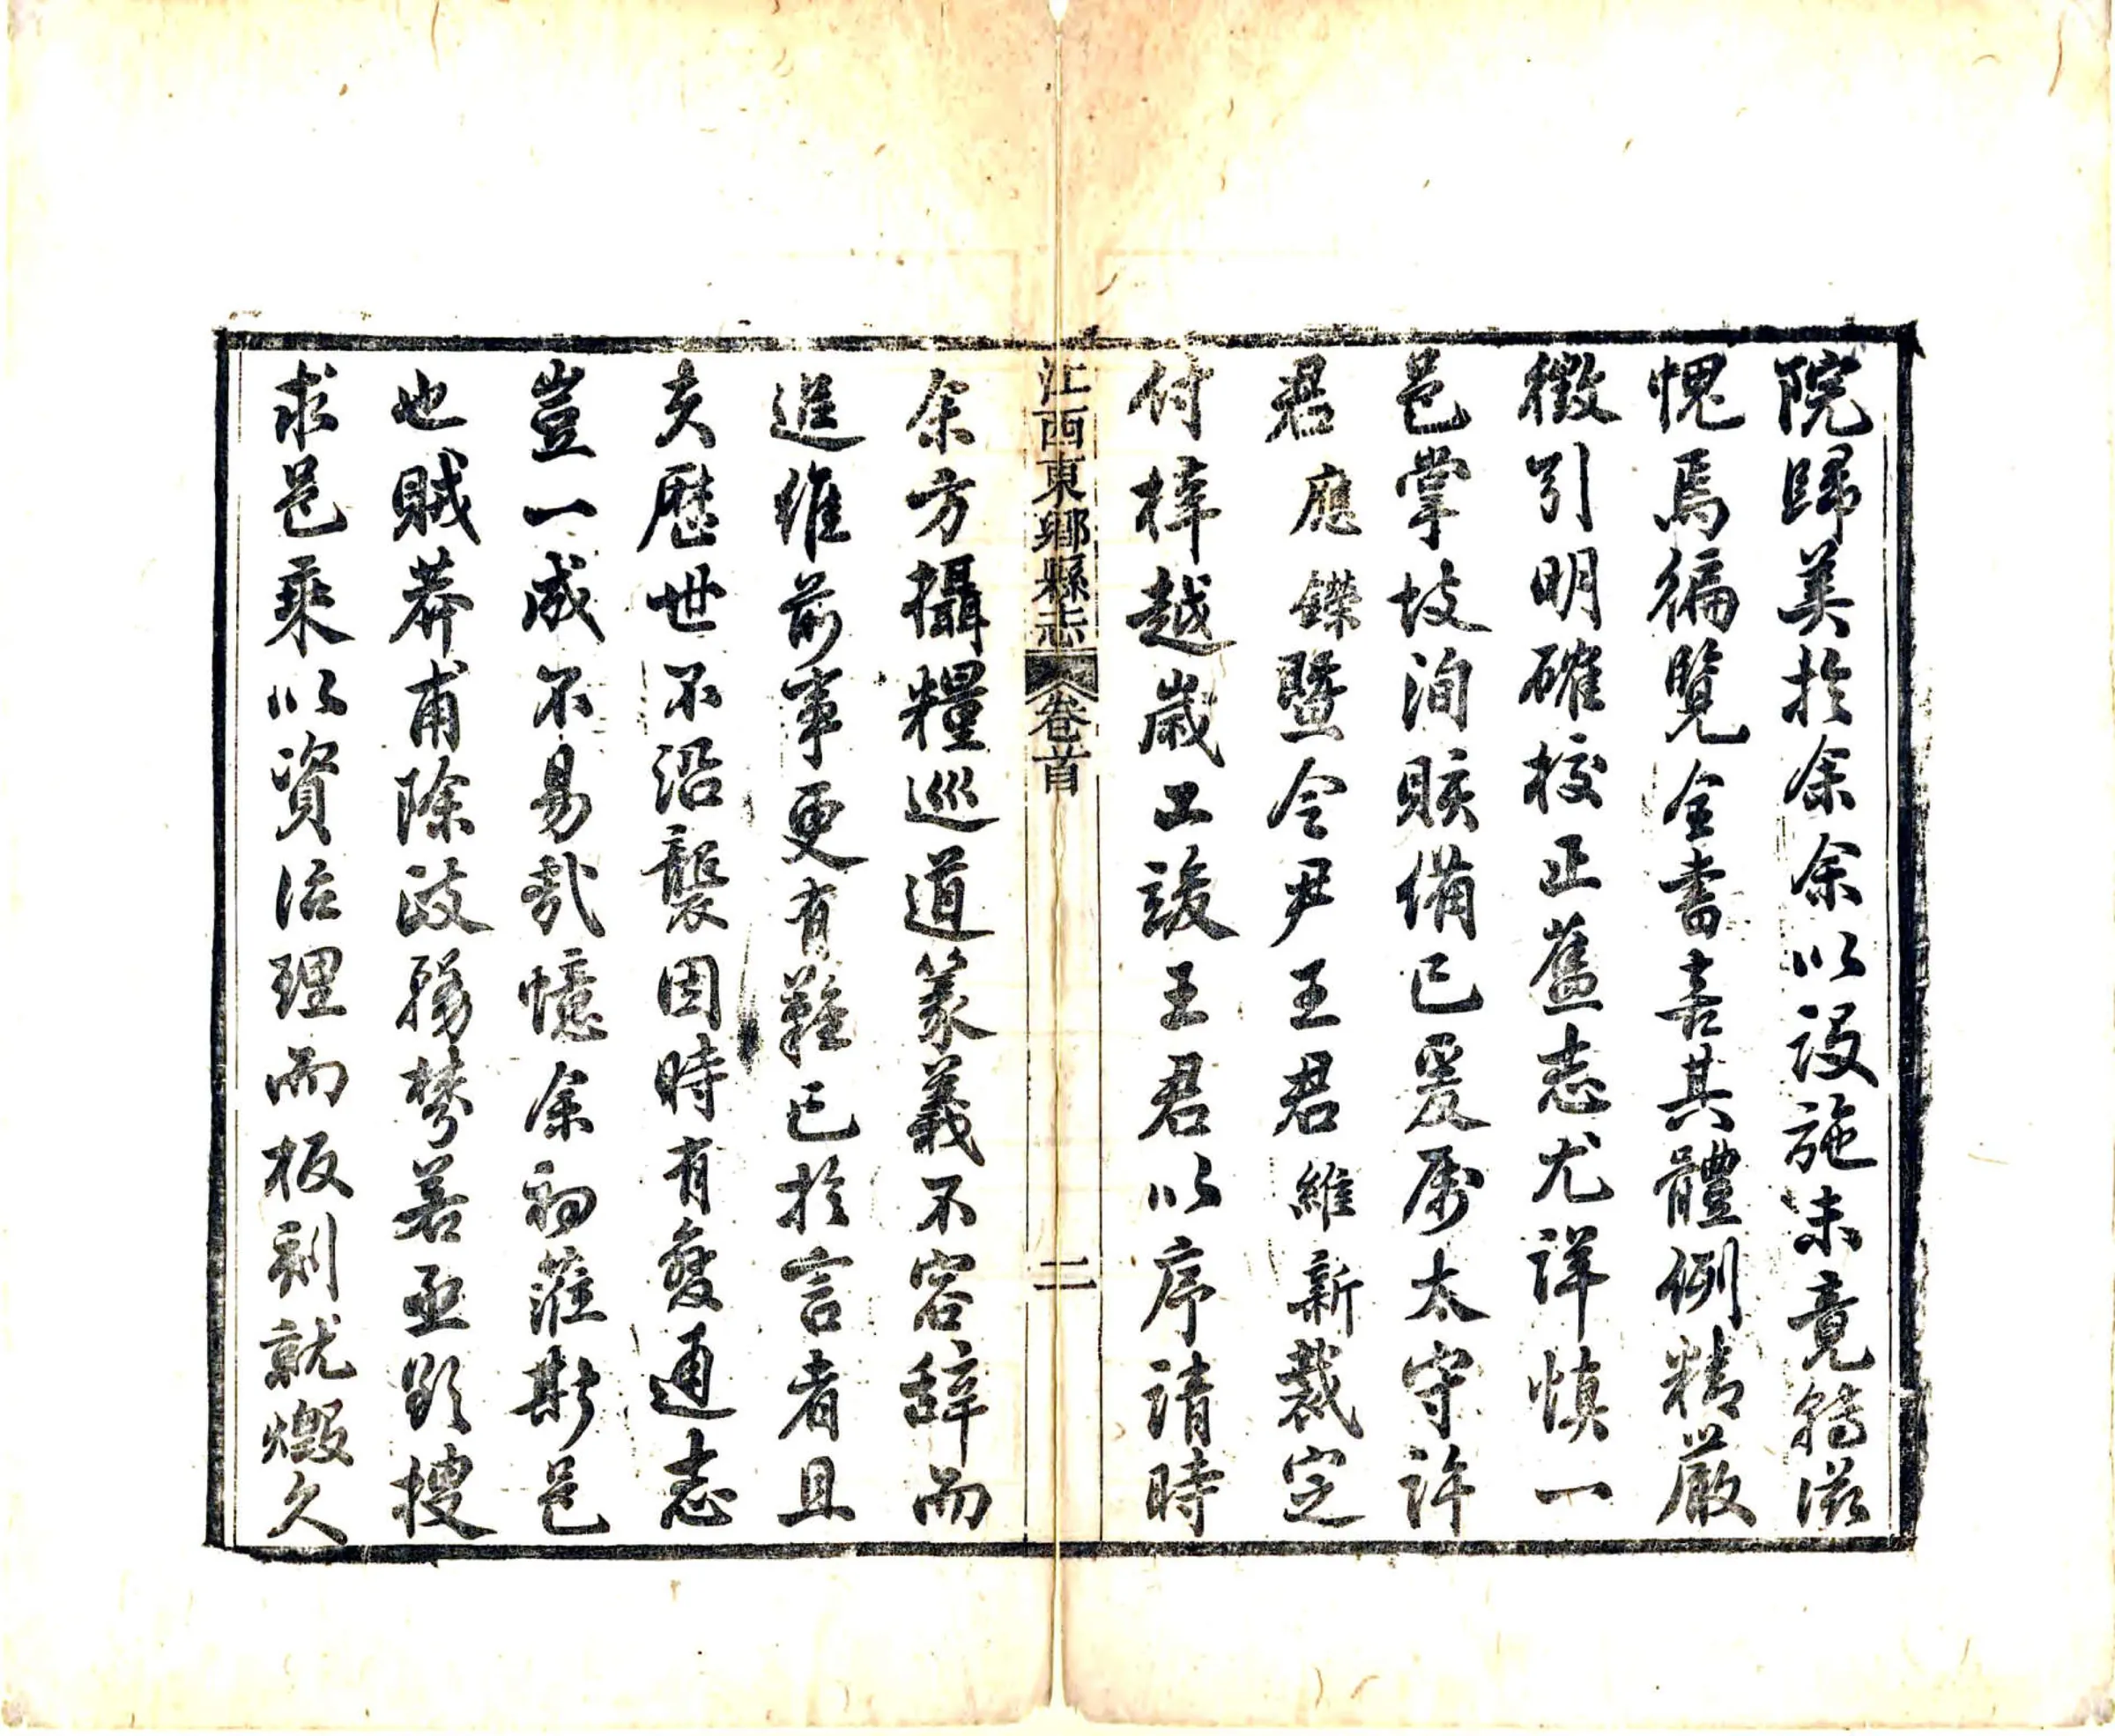 院歸美於余余以設施未竟轉滋
愧焉徧覽全書喜其體例精嚴
徵引明確校正舊志尤詳慎一
邑掌故洵賅備已爰屬太守許
君應鑅暨令尹王君維新裁定
付梓越歲工竣王君以序請時
江西東鄉縣志 卷首 二
余方攝糧巡道篆義不容辭而
進維前事更有難已於言者且
夫歷世不沿襲因時有變通志
豈一成不易哉憶余初蒞斯邑
也賊莽甫除政務棼若亟欲搜
求邑乘以資治理而板剝就燬久